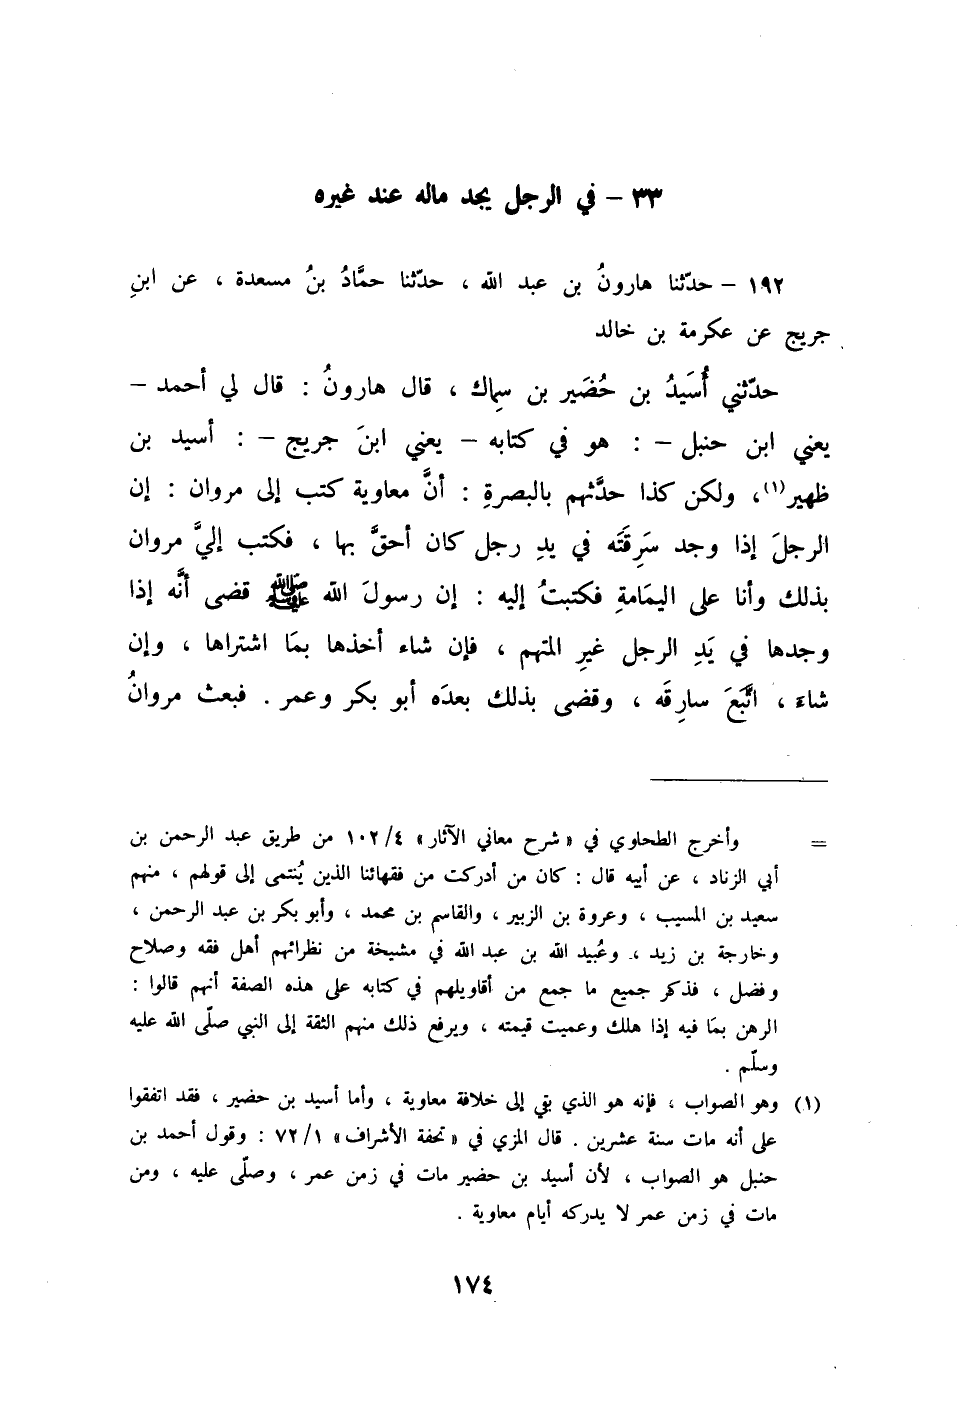 ٣٣ – في الرجل يجد ماله عند غيره
١٩٢ – حدّثنا هارونُ بن عبد الله ، حدّثنا حمَّادُ بنُ مسعدة ، عن ابنِ
جريج عن عكرمة بن خالد
حدّثني أُسَيدُ بن حُضَير بن سِماك ، قال هارونُ : قال لي أحمد –
يعني ابن حنبل – : هو في كتابه – يعني ابنَ جريج – : أسيد بن
ظهير(١)، ولكن كذا حدَّثهم بالبصرةِ : أنَّ معاوية كتب إلى مروان : إن
الرجلَ إذا وجد سَرِقَتَه في يدِ رجل كان أحقَّ بها ، فكتب إليَّ مروان
بذلك وأنا على اليمَامةِ فكتبتُ إليه : إن رسولَ الله ﷺ قضى أنَّه إذا
وجدها في يَدِ الرجل غيرِ المتهم ، فإن شاء أخذها بمَا اشتراها ، وإن
شاءَ ، اتَّبَعَ سارِقَه ، وقضى بذلك بعدَه أبو بكر وعمر . فبعث مروانُ
= وأخرج الطحاوي في « شرح معاني الآثار » ١٠٢/٤ من طريق عبد الرحمن بن
أبي الزناد ، عن أبيه قال : كان من أدركت من فقهائنا الذين يُنتمى إلى قولهم ، منهم
سعيد بن المسيب ، وعروة بن الزبير ، والقاسم بن محمد ، وأبو بكر بن عبد الرحمن ،
وخارجة بن زيد ، وعُبيد الله بن عبد الله في مشيخة من نظرائهم أهل فقه وصلاح
وفضل ، فذكر جميع ما جمع من أقاويلهم في كتابه على هذه الصفة أنهم قالوا :
الرهن بمَا فيه إذا هلك وعميت قيمته ، ويرفع ذلك منهم الثقة إلى النبي صلّى الله عليه
وسلّم .
(١) وهو الصواب ، فإنه هو الذي بقي إلى خلافة معاوية ، وأما أسيد بن حضير ، فقد اتفقوا
على أنه مات سنة عشرين . قال المزي في « تحفة الأشراف » ٧٢/١ : وقول أحمد بن
حنبل هو الصواب ، لأن أسيد بن حضير مات في زمن عمر ، وصلّى عليه ، ومن
مات في زمن عمر لا يدركه أيام معاوية .
١٧٤